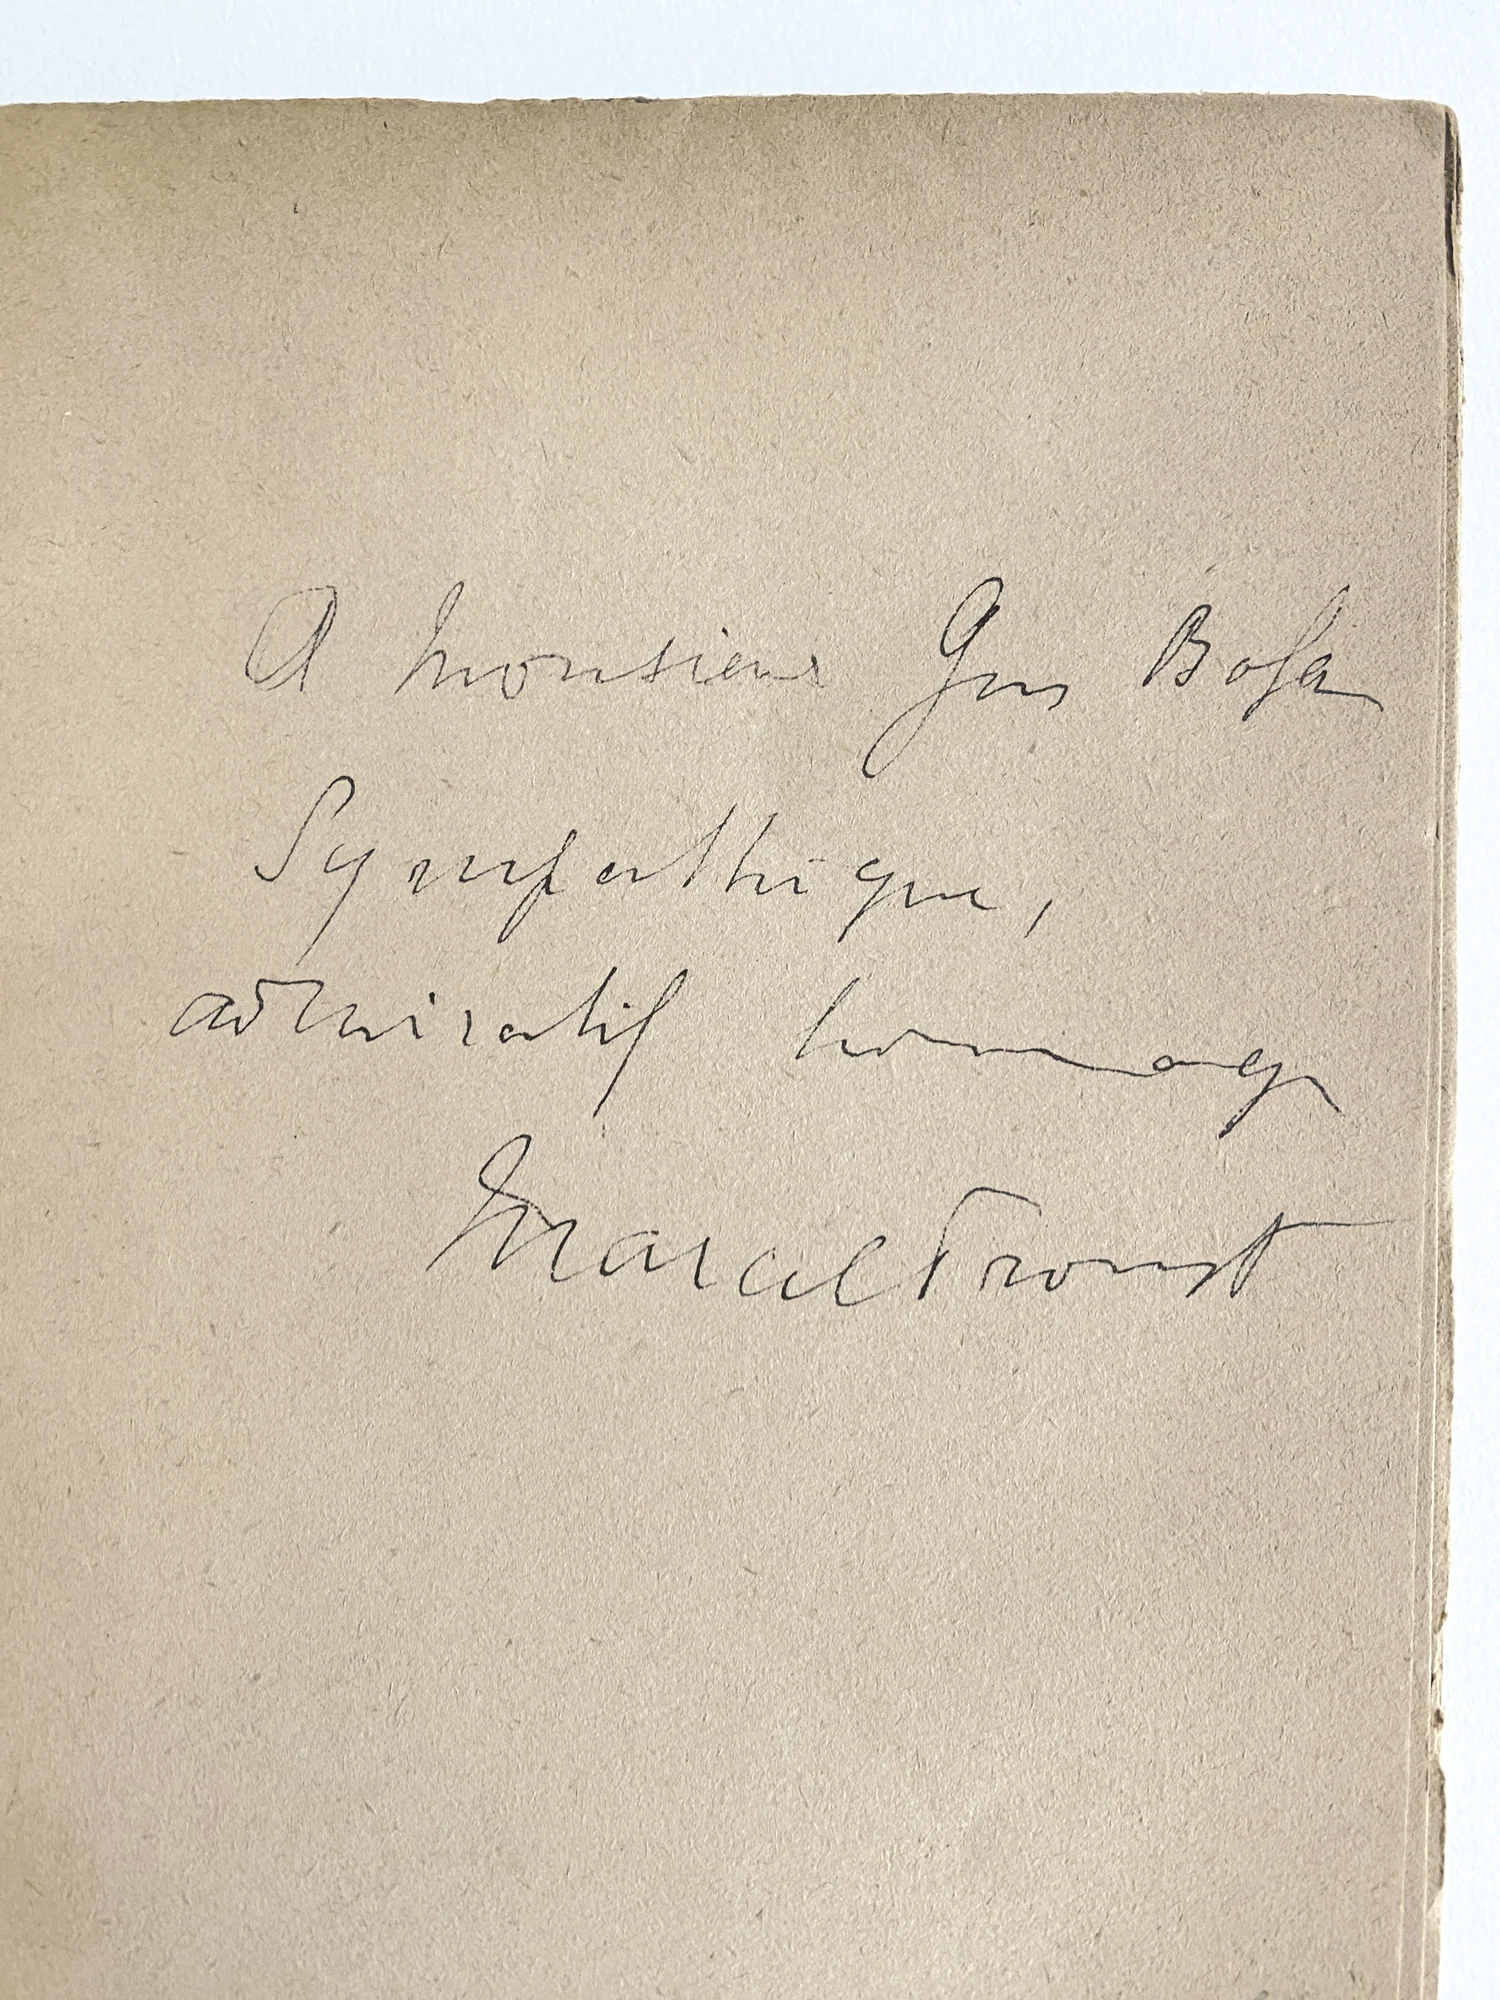 A Monsieur Gus Bofa
Sympathique,
admiratif hommage
Marcel Proust